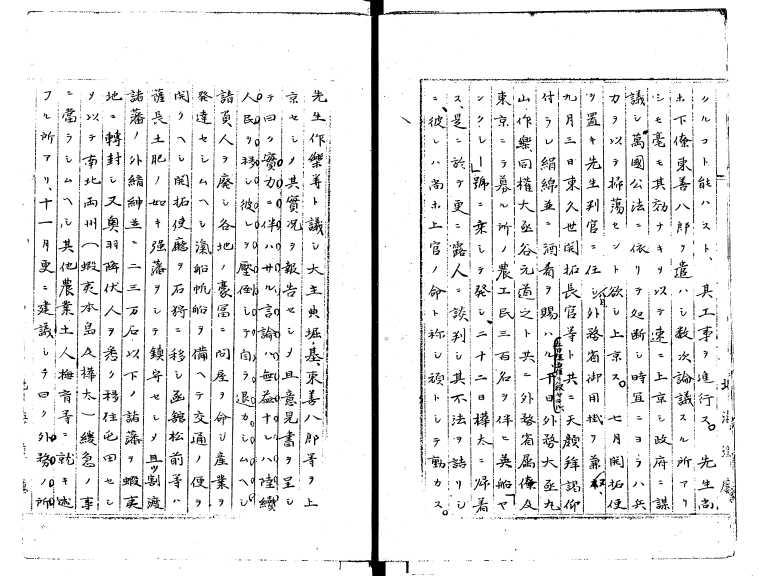 クルコト能ハスト、其工事ヲ進行ス。先生尚
ホ下僚東善八郎ヲ遣ハシ数次論議スル所アリ
シモ毫モ其効ナキヲ以テ速ニ上京シ政府ニ謀
議シ萬國公法ニ依リテ処断シ時宜ニヨラハ兵
力ヲ以テ掃蕩セント欲シ上京ス。七月開拓使
ヲ置キ先生判官ニ任シ外務省御用掛ヲ兼
九月三日東久世開拓長官等ト共ニ天顔拝謁仰
付ラレ絹綿並ニ酒肴ヲ賜ハル 日外務大丞丸
山作樂同權大丞谷元道之ト共ニ外務省属僚及
東京ニテ募ル所ノ農工民三百名ヲ伴ヒ英船「ヤ
ンクシー」號ニ乗シテ発シ、二十二日樺太ニ帰着
ス、是ニ於テ更ニ露人ニ談判シ其不法ヲ詰リシ
ニ、彼レハ尚ホ上官ノ命ト称シ頑トシテ動カス。
先生作樂等ト議シ大主典堀基、東善八郎等ヲ上
京セシメ其實況ヲ報告セシメ且意見書ヲ呈シ
テ曰ク實力ニ伴ハサル言論ハ無益ナレハ陸續
人民ヲ移シ彼レヲ壓倒シテ自ラ退カシムヘシ
請負人ヲ廃シ各地ノ豪冨ニ問屋ヲ命シ産業ヲ
発達セシムヘシ滊船帆船ヲ備ヘテ交通ノ便ヲ
開クヘシ開拓使廳ヲ石狩ニ移シ函館松前等ハ
薩長土肥ノ如キ強藩ヲシテ鎮守セシメ且ツ割渡
諸藩ノ外縉紳並ニ二三万石以下ノ諸藩ヲ蝦夷
地ニ轉封シ又奥羽降伏人ヲ悉ク移住屯田セシ
メ以テ南北両州(蝦夷本島及樺太)緩急ノ事
ニ當ラシムヘシ其他農業土人撫育等ニ就キ述
フル所アリ、十一月更ニ建議シテ曰ク外務ノ所